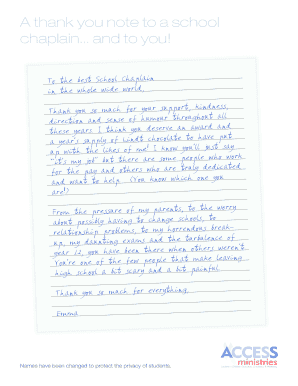 A thank you note to a school
chaplain... and to you!
To the best School Chaplain
in the whole wide world,
Thank you so much for your support, kindness,
direction and sense of humour throughout all
these years. I think you deserve an award and
a year's supply of Lindt chocolate to have put
up with the likes of me! I know you'll just say
"it's my job" but there are some people who work
for the pay and others who are truly dedicated
and want to help. (You know which one you
are!)
From the pressure of my parents, to the worry
about possibly having to change schools, to
relationship problems, to my horrendous break-
up, my daunting exams and the turbulence of
year 12, you have been there when others weren't.
You're one of the few people that make leaving
high school a bit scary and a bit painful.
Thank you so much for everything,
Emma
Names have been changed to protect the privacy of students.
ACCESS
ministries